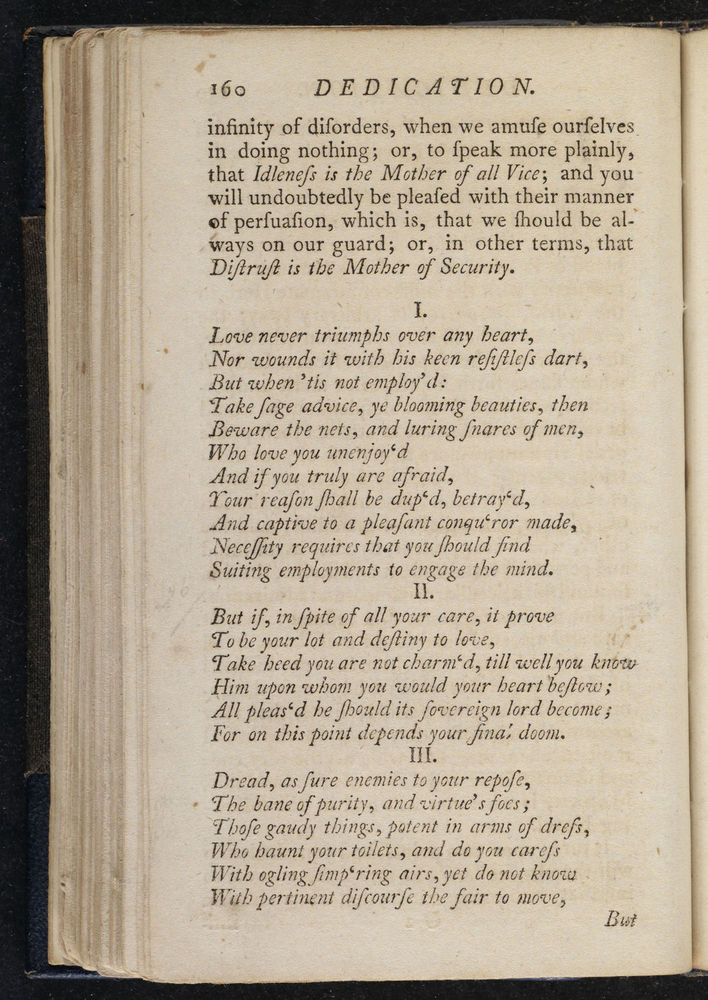 160 DEDICATION.
infinity of diſorders, when we amuſe ourſelves
in doing nothing; or, to ſpeak more plainly,
that Idleneſs is the Mother of all Vice; and you
will undoubtedly be pleaſed with their manner
of perſuaſion, which is, that we ſhould be al-
ways on our guard; or, in other terms, that
Diſtruſt is the Mother of Security.
I.
Love never triumphs over any heart,
Nor wounds it with his keen reſiſtleſs dart,
But when 'tis not employ'd:
Take ſage advice, ye blooming beauties, then
Beware the nets, and luring ſnares of men,
Who love you unenjoy‘d
And if you truly are afraid,
Your reaſon ſhall be dup‘d, betray‘d,
And captive to a pleaſant conqu‘ror made,
Neceſſity requires that you ſhould find
Suiting employments to engage the mind.
II.
But if, in ſpite of all your care, it prove
To be your lot and deſtiny to love,
Take heed you are not charm‘d, till well you know
Him upon whom you would your heart beſtow;
All pleas‘d he ſhould its ſovereign lord become;
For on this point depends your final doom.
III.
Dread, as ſure enemies to your repoſe,
The bane of purity, and virtue's foes;
Thoſe gaudy things, potent in arms of dreſs,
Who haunt your toilets, and do you careſs
With ogling ſimp‘ring airs, yet do not know
With pertinent diſcourſe the fair to move,
But